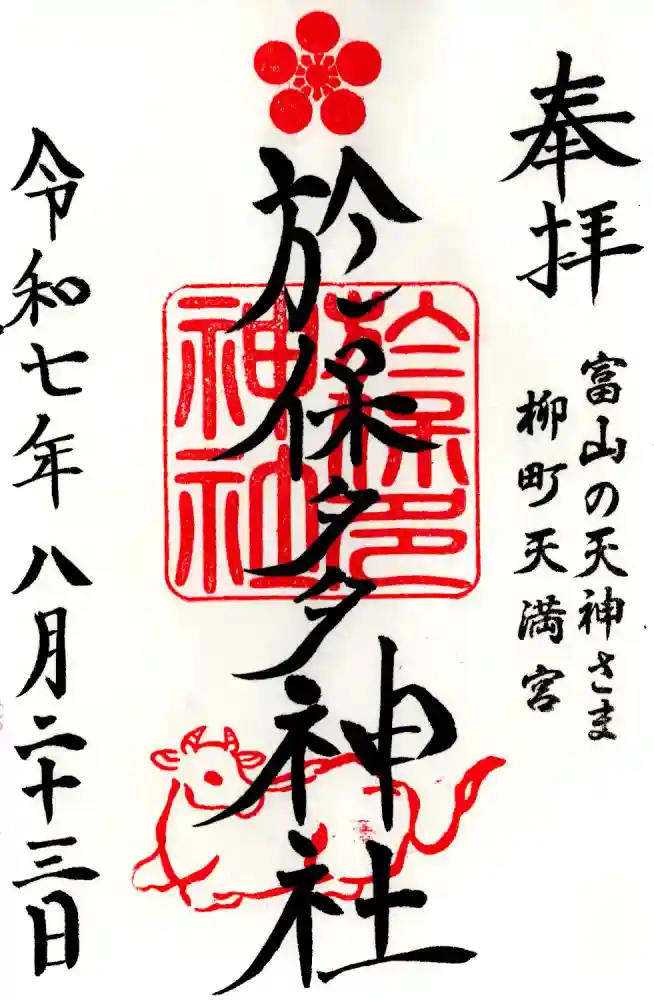 奉拝
富山の天神さま
柳町天満宮
於保多神社
於保多神社
令和七年八月二十三日